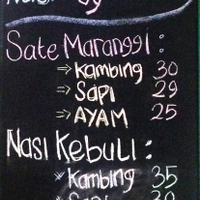 Sate Maranggi :
⇒ Kambing 30
⇒ SAPi 29
⇒ AYAM 25
Nasi Kebuli :
Kambing 35